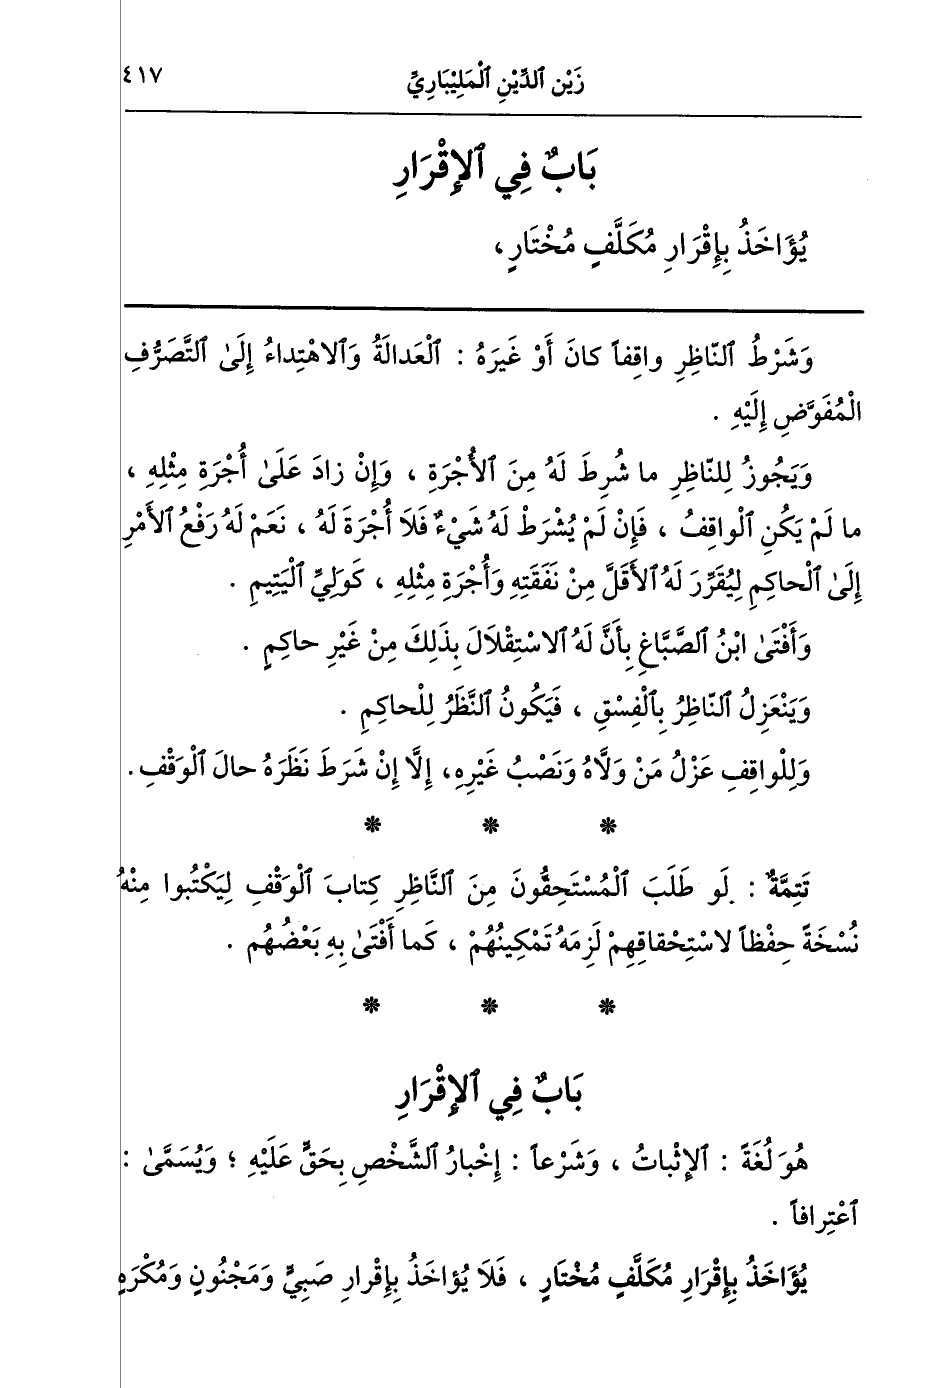 زَيْن ٱلدِّيْنِ ٱلْمَلِيْبَارِيِّ ٤١٧
بَابٌ فِي ٱلإِقْرَارِ
يُؤَاخَذُ بِإِقْرَارِ مُكَلَّفٍ مُخْتَارٍ،
وَشَرْطُ ٱلنّاظِرِ واقِفاً كانَ أَوْ غَيرَهُ : ٱلْعَدالَةُ وَٱلاهْتِداءُ إِلَىٰ ٱلتَّصَرُّفِ
الْمُفَوَّضِ إِلَيْهِ .
وَيَجُوزُ لِلنّاظِرِ ما شُرِطَ لَهُ مِنَ ٱلأُجْرَةِ ، وَإِنْ زادَ عَلَىٰ أُجْرَةِ مِثْلِهِ ،
ما لَمْ يَكُنِ ٱلْواقِفُ ، فَإِنْ لَمْ يُشْرَطْ لَهُ شَيْءٌ فَلَا أُجْرَةَ لَهُ ، نَعَمْ لَهُ رَفْعُ ٱلأَمْرِ
إِلَىٰ ٱلْحاكِمِ لِيُقَرِّرَ لَهُ ٱلأَقَلَّ مِنْ نَفَقَتِهِ وَأُجْرَةِ مِثْلِهِ ، كَوَلِيِّ ٱلْيَتِيمِ .
وَأَفْتَىٰ ابْنُ ٱلصَّبَّاغِ بِأَنَّ لَهُ ٱلاسْتِقْلَالَ بِذَلِكَ مِنْ غَيْرِ حاكِمٍ .
وَيَنْعَزِلُ ٱلنّاظِرُ بِٱلْفِسْقِ ، فَيَكُونُ ٱلنَّظَرُ لِلْحاكِمِ .
وَلِلْواقِفِ عَزْلُ مَنْ وَلَّاهُ وَنَصْبُ غَيْرِهِ، إِلَّا إِنْ شَرَطَ نَظَرَهُ حالَ ٱلْوَقْفِ .
* * *
تَتِمَّةٌ : لَو طَلَبَ ٱلْمُسْتَحِقُّونَ مِنَ ٱلنَّاظِرِ كِتابَ ٱلْوَقْفِ لِيَكْتُبوا مِنْهُ
نُسْخَةً حِفْظاً لاسْتِحْقاقِهِمْ لَزِمَهُ تَمْكِينُهُمْ ، كَما أَفْتَىٰ بِهِ بَعْضُهُم .
* * *
بَابٌ فِي ٱلإِقْرَارِ
هُوَ لُغَةً : ٱلإِثْباتُ ، وَشَرْعاً : إِخْبارُ ٱلشَّخْصِ بِحَقٍّ عَلَيْهِ ؛ وَيُسَمَّىٰ :
ٱعْتِرافاً .
يُؤَاخَذُ بِإِقْرَارِ مُكَلَّفٍ مُخْتَارٍ ، فَلَا يُؤاخَذُ بِإِقْرارِ صَبِيٍّ وَمَجْنُونٍ وَمُكْرَهٍ